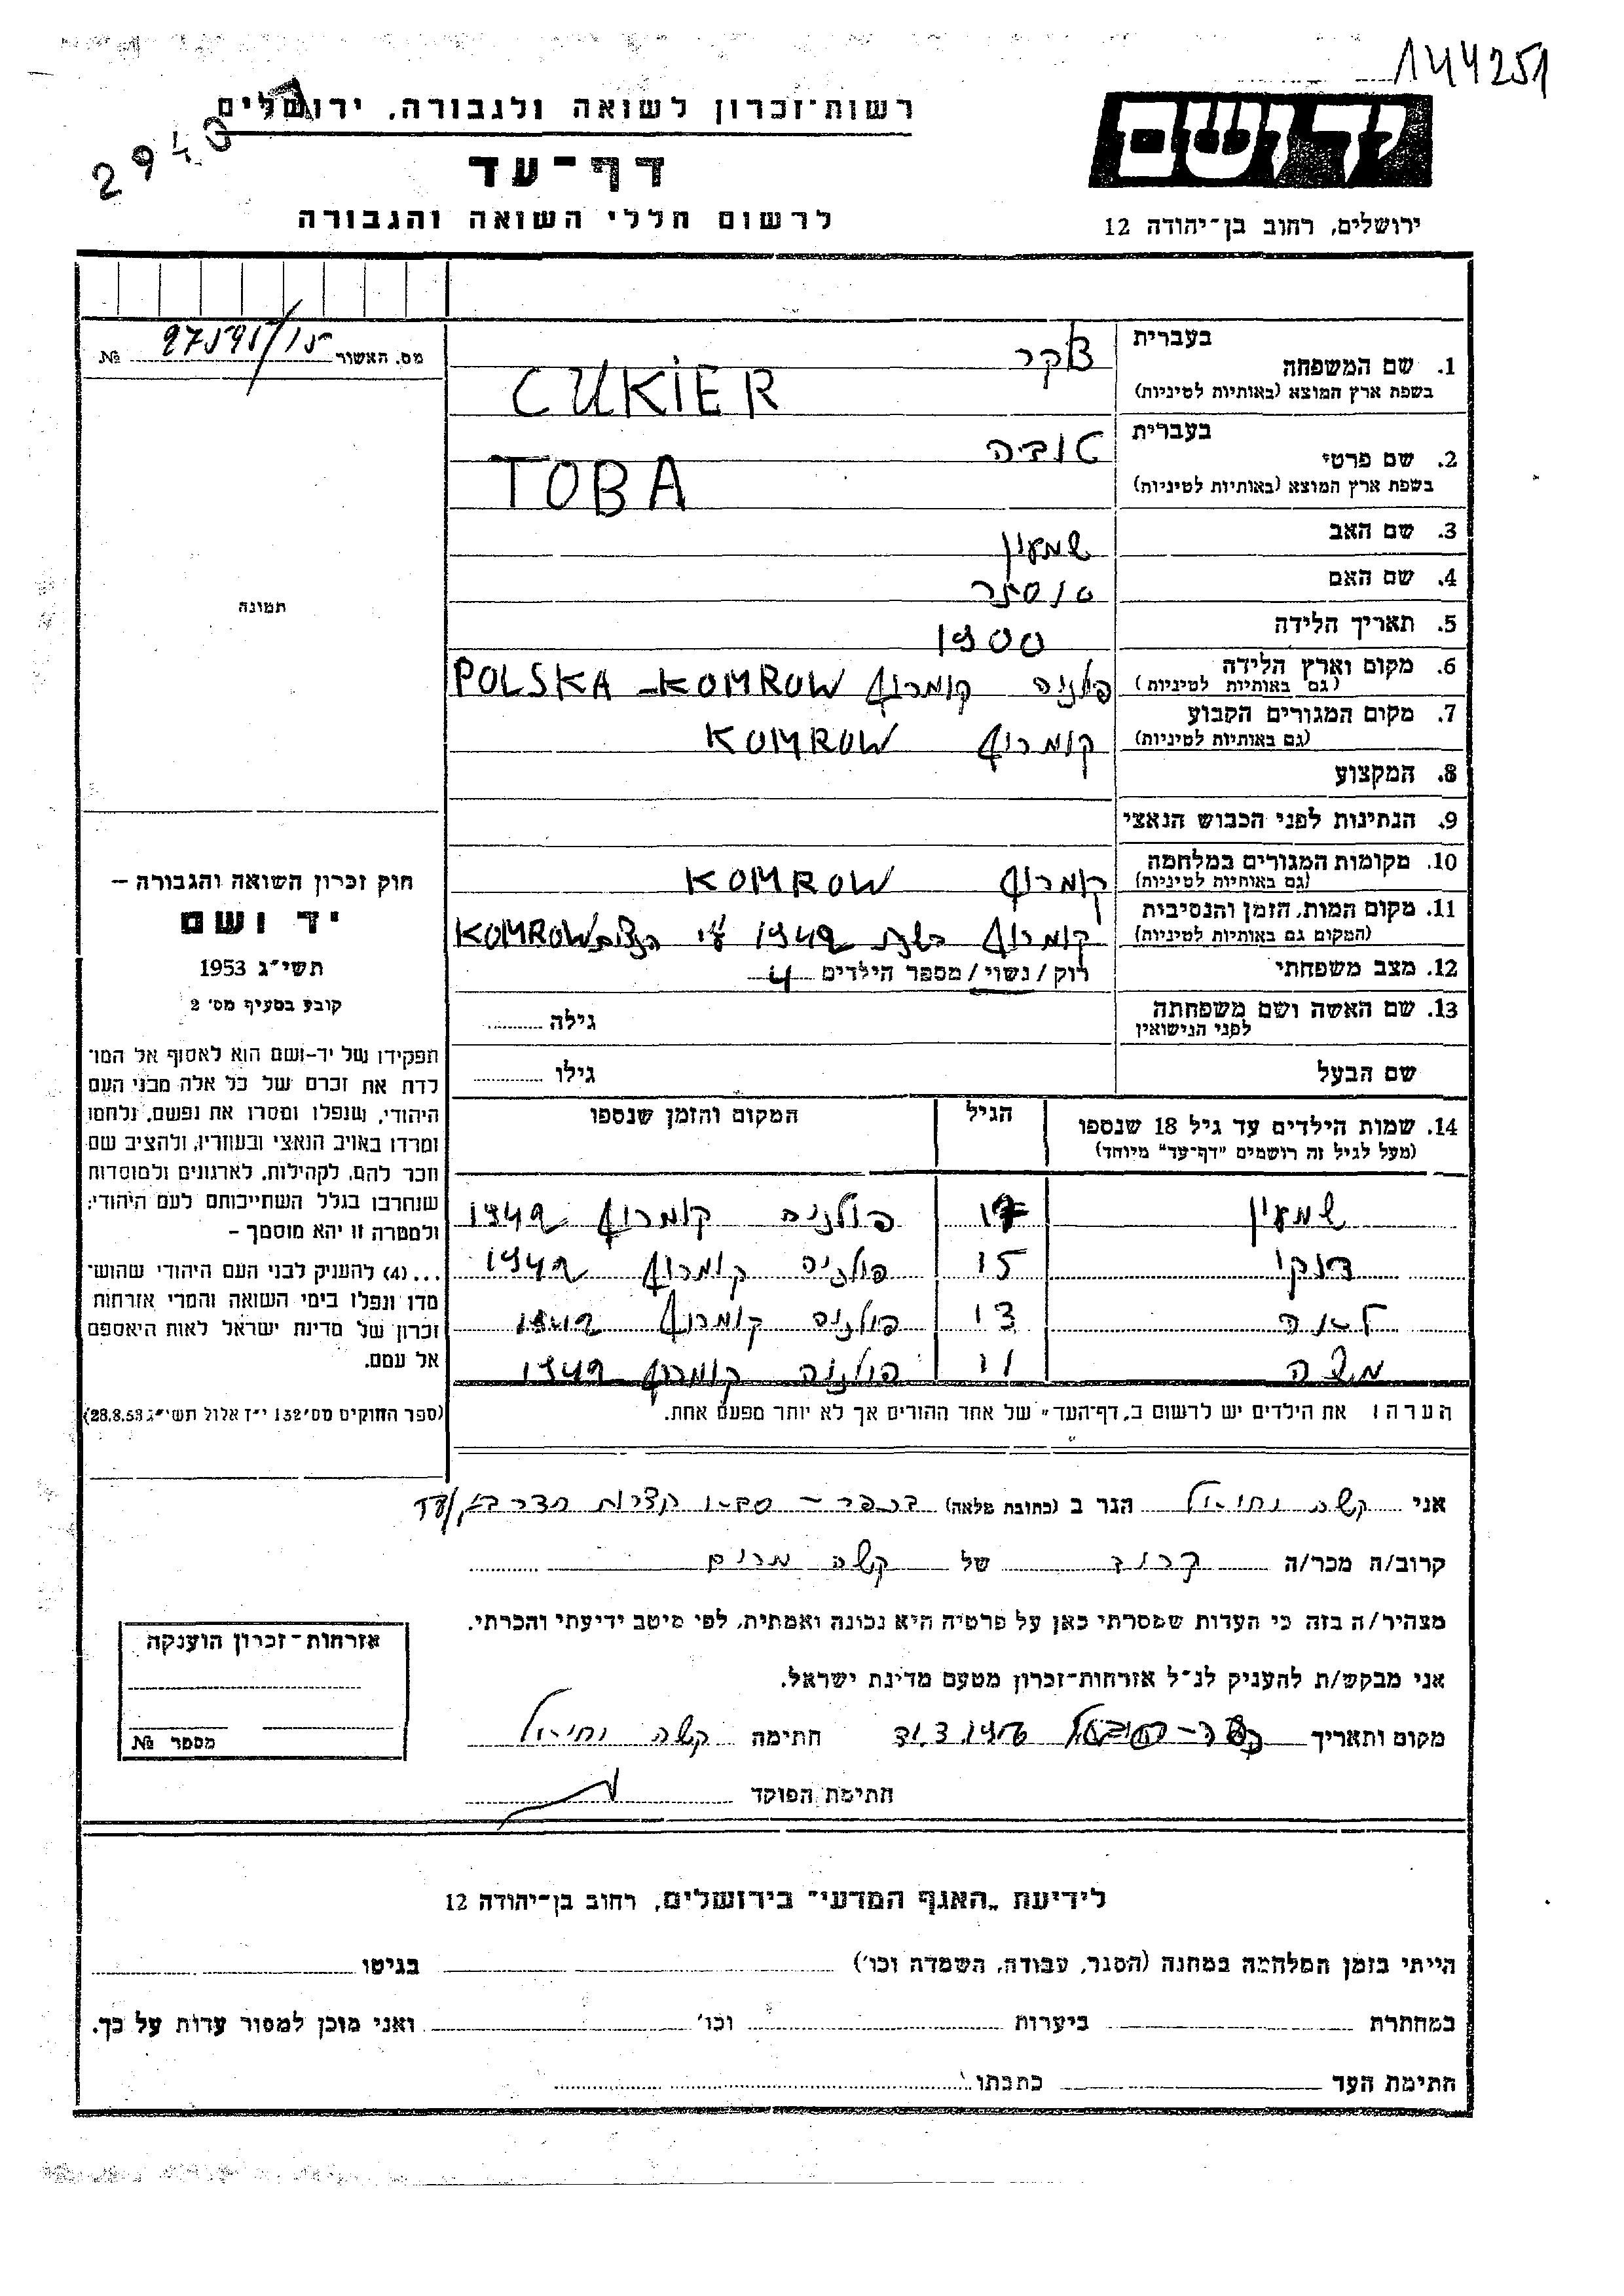 144251
רשות-זכרון לשואה ולגבורה, ירושלים
2940
דף-עד
לרשום חללי השואה והגבורה
יד ושם
ירושלים, רחוב בן-יהודה 12
מס. האשור 27595/15 №
1. שם המשפחה
בעברית צוקר
בשפת ארץ המוצא (באותיות לטיניות) CUKIER
2. שם פרטי
בעברית טובה
בשפת ארץ המוצא (באותיות לטיניות) TOBA
3. שם האב שמעון
4. שם האם
5. תאריך הלידה 1900
6. מקום וארץ הלידה (גם באותיות לטיניות) פולניה קומרוב POLSKA - KOMROW
7. מקום המגורים הקבוע (גם באותיות לטיניות) קומרוב KOMROW
8. המקצוע
9. הנתינות לפני הכבוש הנאצי
10. מקומות המגורים במלחמה (גם באותיות לטיניות) קומרוב KOMROW
11. מקום המות, הזמן והנסיבות (המקום גם באותיות לטיניות) קומרוב בשנת 1942 ע"י KOMROW
12. מצב משפחתי רוק / נשוי / מספר הילדים 4
13. שם האשה ושם משפחתה לפני הנישואין גילה
שם הבעל גילו
14. שמות הילדים עד גיל 18 שנספו הגיל המקום והזמן שנספו
(מעל לגיל זה רושמים "דף-עד" מיוחד)
שמעון 17 פולניה קומרוב 1942
15 פולניה קומרוב 1942
לאה 13 פולניה קומרוב 1942
משה 11 פולניה קומרוב 1942
הערה: את הילדים יש לרשום ב"דף-העד" של אחד ההורים אך לא יותר מפעם אחת.
תמונה
חוק זכרון השואה והגבורה –
יד ושם
תשי"ג 1953
קובע בסעיף מס' 2
תפקידו של יד-ושם הוא לאסוף אל המו־
לדת את זכרם של כל אלה מבני העם
היהודי, שנפלו ומסרו את נפשם, נלחמו
ומרדו באויב הנאצי ובעוזריו, ולהציב שם
וזכר להם, לקהילות, לארגונים ולמוסדות
שנחרבו בגלל השתייכותם לעם היהודי;
ולמטרה זו יהא מוסמך –
...(4) להעניק לבני העם היהודי שהוש־
מדו ונפלו בימי השואה והמרי אזרחות
זכרון של מדינת ישראל לאות היאספם
אל עמם.
(ספר החוקים מס' 132 י"ז אלול תשי"ג 28.8.53)
אני קשה הגר ב (כתובת מלאה) בכפר - סבא
קרוב/ה מכר/ה קרוב של קשה מרים
מצהיר/ה בזה כי העדות שמסרתי כאן על פרטיה היא נכונה ואמתית, לפי מיטב ידיעתי והכרתי.
אני מבקש/ת להעניק לנ"ל אזרחות-זכרון מטעם מדינת ישראל.
מקום ותאריך חתימה קשה
חתימת הפוקד
אזרחות-זכרון הוענקה
מספר №
לידיעת "האגף המדעי" בירושלים, רחוב בן-יהודה 12
הייתי בזמן המלחמה במחנה (הסגר, עבודה, השמדה וכו') בגיטו
במחתרת ביערות וכו' ואני מוכן למסור עדות על כך.
חתימת העד כתבתו